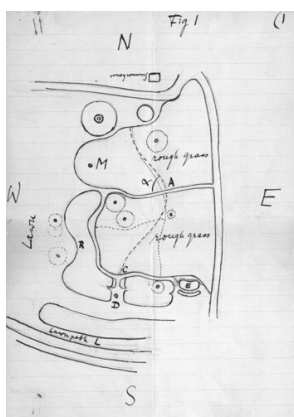 Fig 1
(1
N
Summerhouse
M
rough grass
α
A
W
E
Lawn
B
rough grass
C
E
D
Lawn path L
S